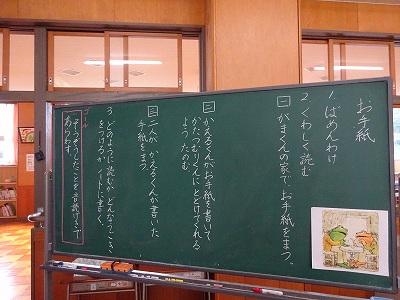 お手紙
1.ばめんわけ
2.くわしく読む
一 がまくんの家で、お手紙をまつ。
二 かえるくんが、お手紙を書いて
かたつむりくんにとどけてくれる
よう たのむ
三 二人が、かえるくんが書いた
手紙をまつ。
3.どのように読むか、どんなうごき
をつけるか、ノートに書く。
ゴール
そうぞうしたことを音読げきで
あらわす